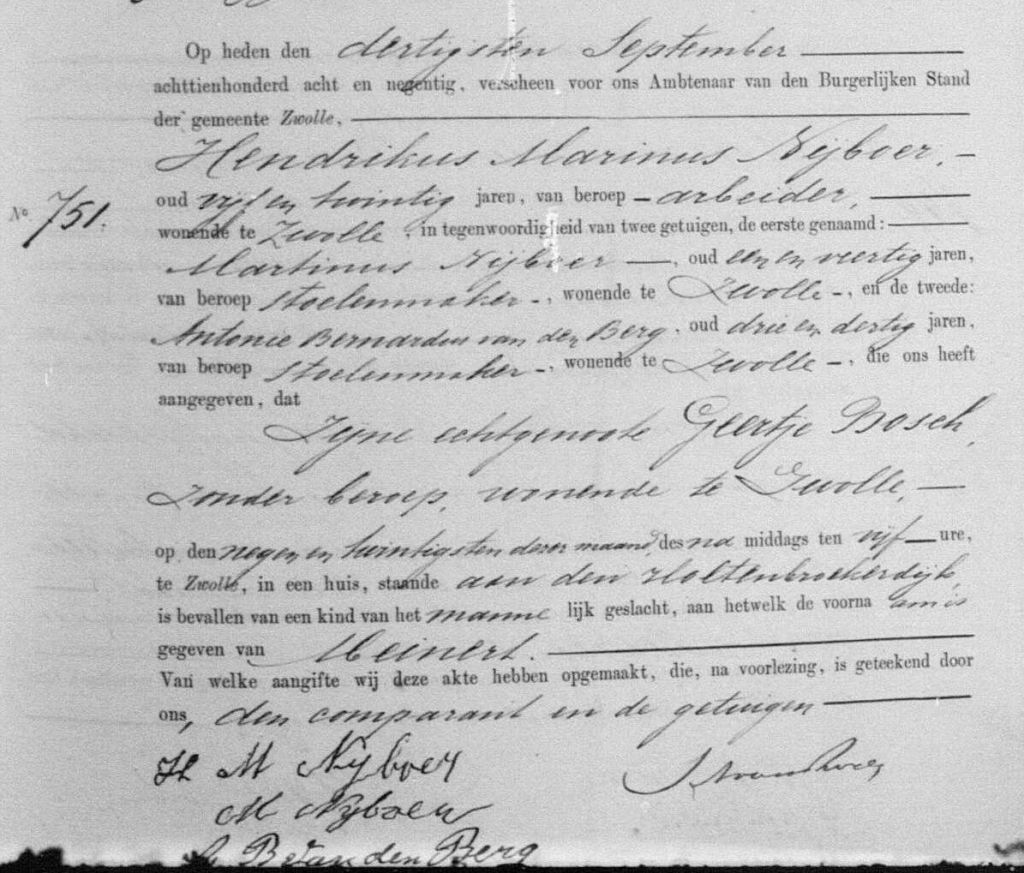 Op heden den dertigsten September
achttienhonderd acht en negentig, verscheen voor ons Ambtenaar van den Burgerlijken Stand
der gemeente Zwolle,
Hendrikus Marinus Nijboer,
oud vijf en twintig jaren, van beroep arbeider,
No. 751.
wonende te Zwolle, in tegenwoordigheid van twee getuigen, de eerste genaamd:
Martinus Nijboer, oud een en veertig jaren,
van beroep stoelenmaker, wonende te Zwolle, en de tweede:
Antonie Bernardus van den Berg, oud drie en dertig jaren,
van beroep stoelenmaker, wonende te Zwolle, die ons heeft
aangegeven, dat
Zijne echtgenoote Geertje Bosch,
zonder beroep, wonende te Zwolle,
op den negen en twintigsten dezer maand, des na middags ten vijf ure,
te Zwolle, in een huis, staande aan den Holtenbroekerdijk,
is bevallen van een kind van het manne lijk geslacht, aan hetwelk de voorna am is
gegeven van Meinert.
Van welke aangifte wij deze akte hebben opgemaakt, die, na voorlezing, is geteekend door
ons, den comparant en de getuigen
H M Nijboer
M Nijboer
A B van den Berg